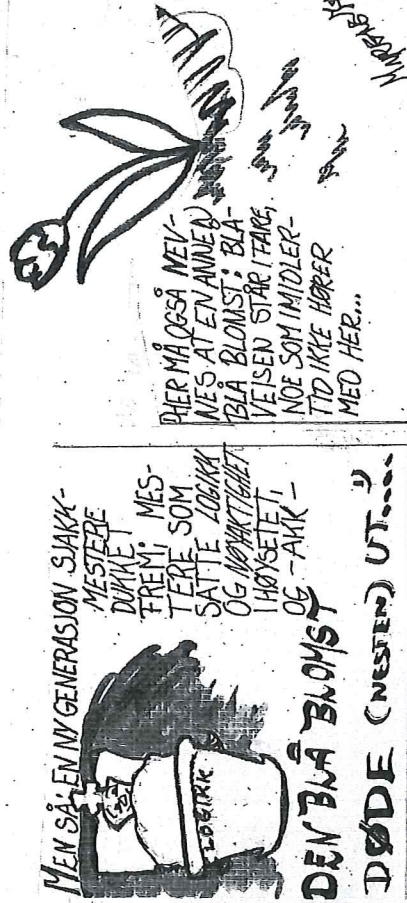 MEN SÅ: EN NY GENERASJON SJAKK-
MESTERE
DUKKET
FREM; MES-
TERE SOM
SATTE LOGIKK
OG NØYAKTIGHET
I HØYSETET,
OG -AKK-
LOGIKK
DEN BLÅ BLOMST
DØDE (NESTEN) UT....1)
1) HER MÅ OGSÅ NEV-
NES AT EN ANNEN
BLÅ BLOMST; BLÅ-
VEISEN STÅR I FARE,
NOE SOM IMIDLER-
TID IKKE HØRER
MED HER...